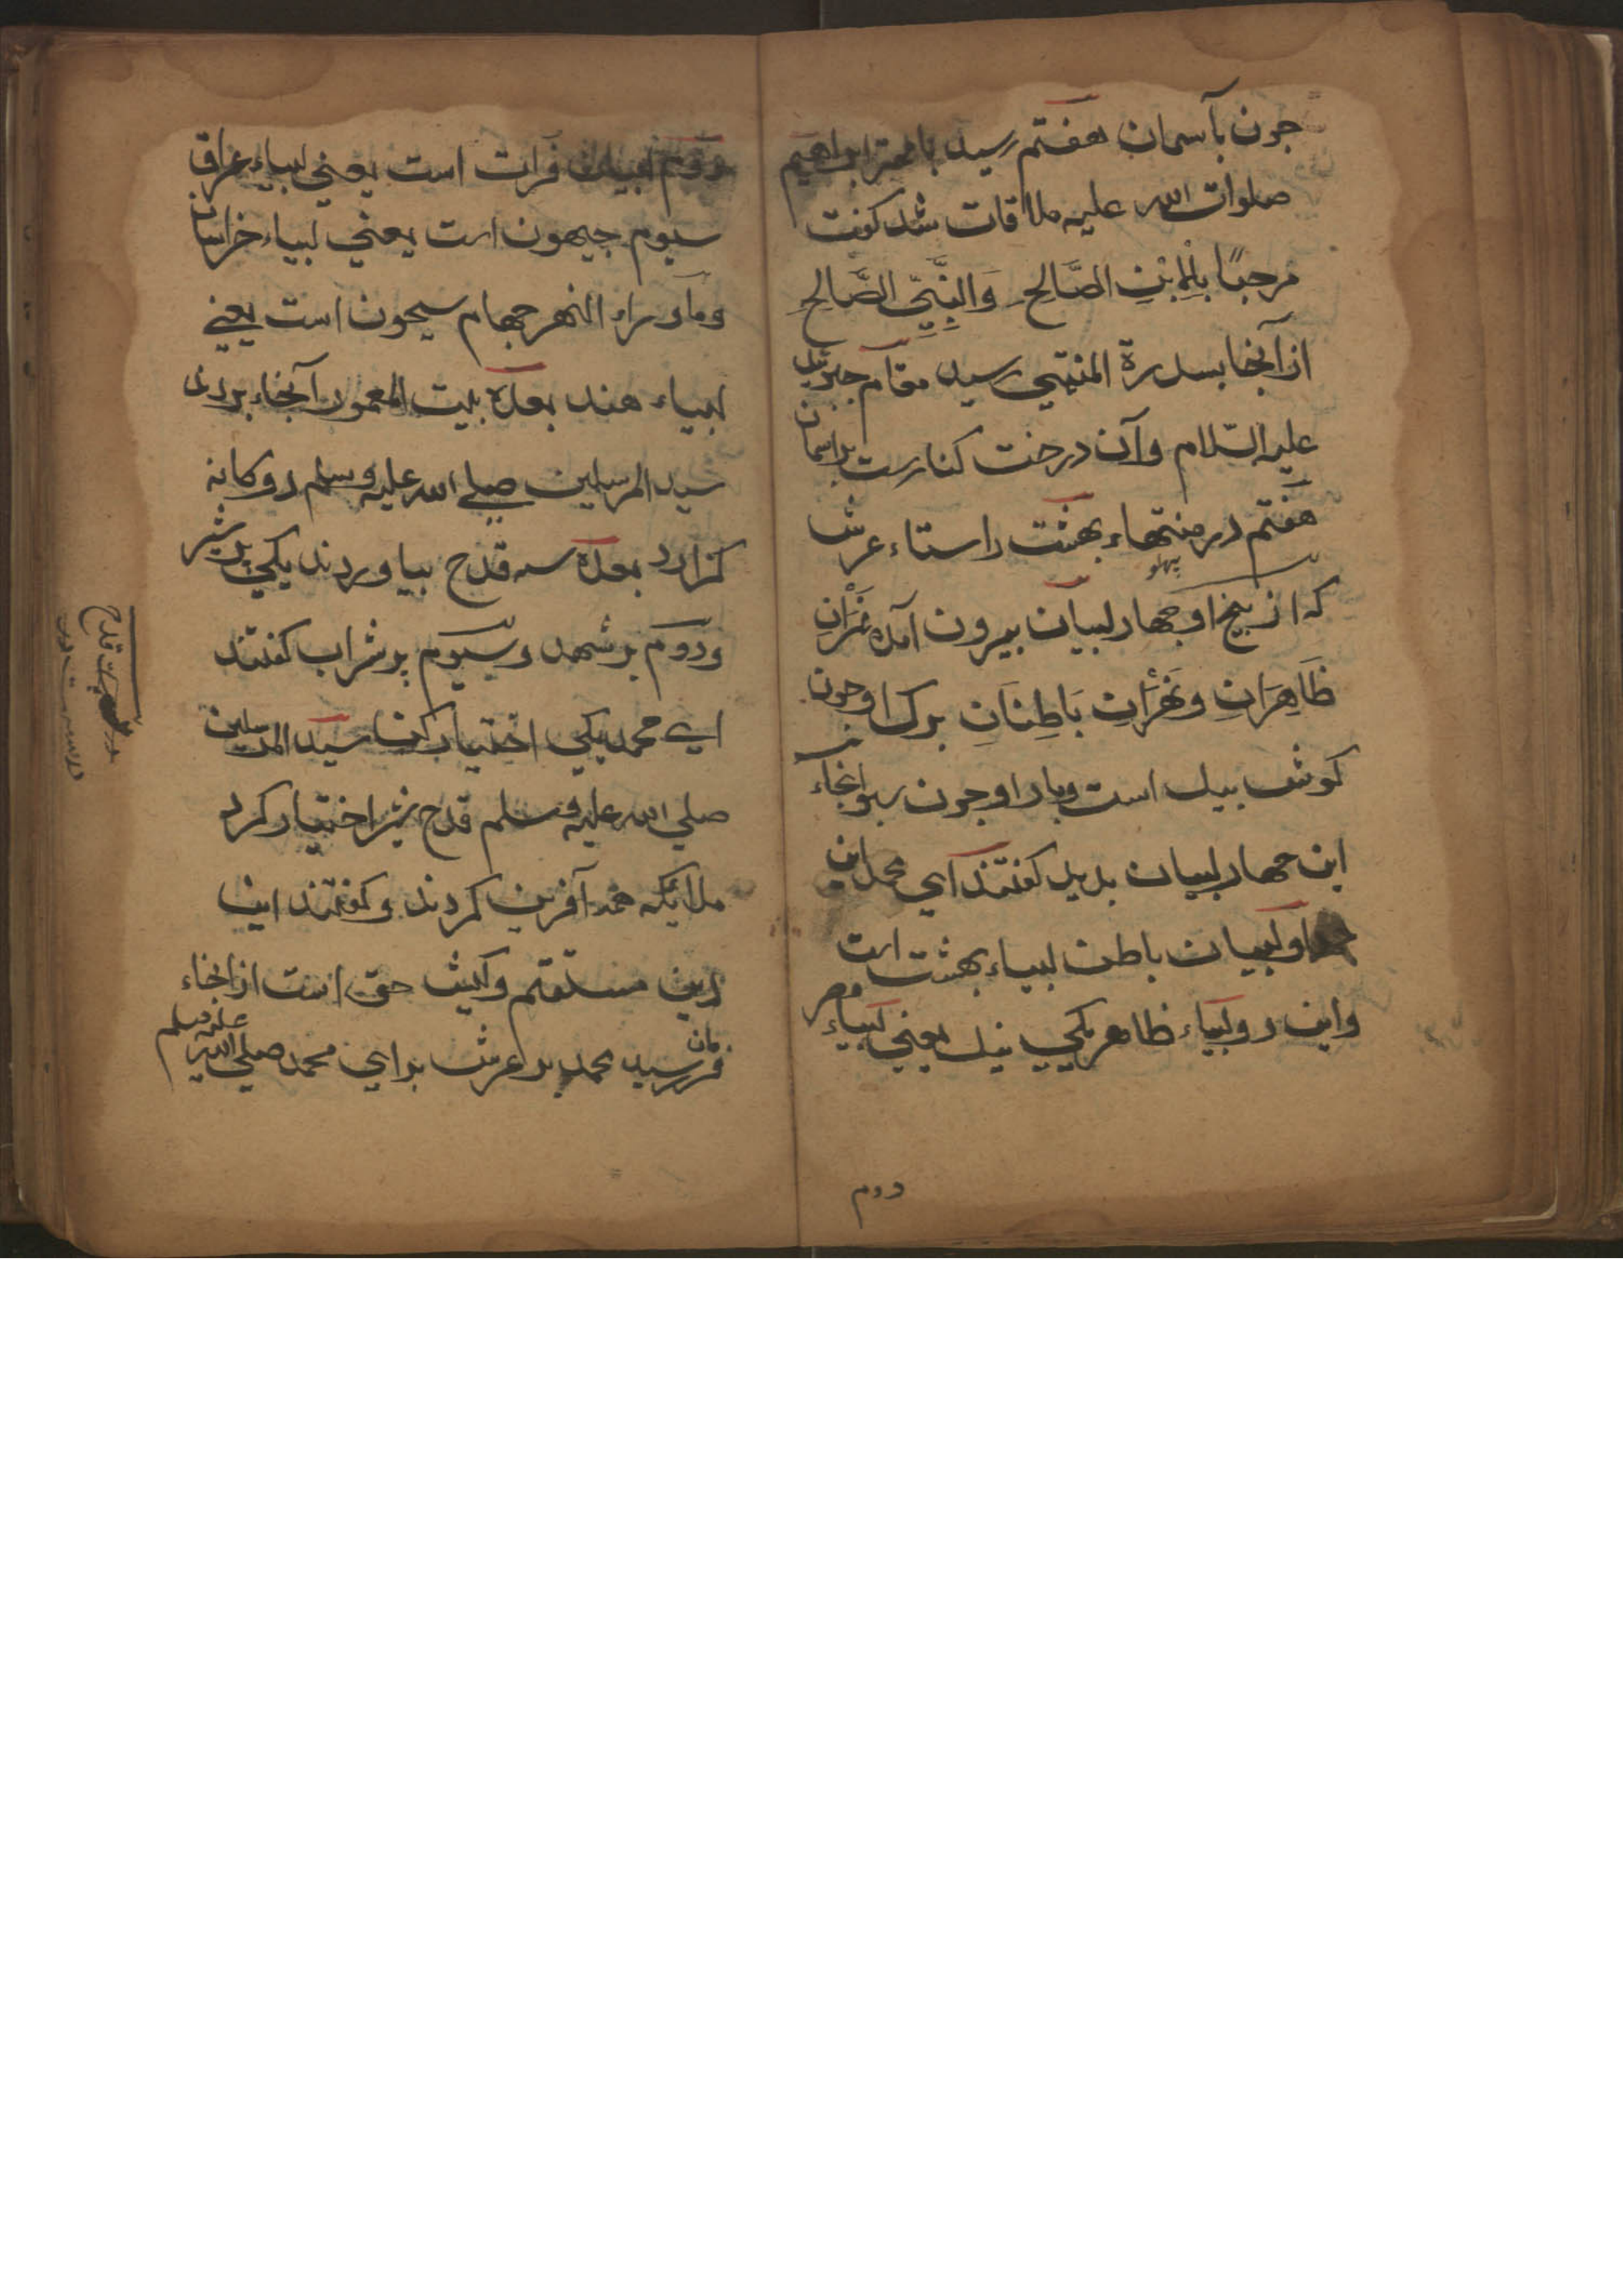 جون بآسمان هفتم رسید با مهتر ابراهیم
صلوات الله علیه ملاقات شد کفت
مرحبًا بِالاِبْنِ الصَّالح وَالنَّبِيِّ الصَّالحِ
از آنجا بسدرة المنتهی رسید مقام جبرئیل
علیه السّلام وآن درخت کنارست بر اسمان
هفتم در منتهاء بهشت راستاء عرش
که از بیخ او جهار لبیان بیرون آمده نَهْرَانِ
پهلو
ظَاهِرَانِ ونَهْرَانِ بَاطِنَانِ برك او جون
کوش بیل است وبار او جون سبو آنجاء
این جهار لبیان بدید کفتند ای محمد این
لبیان باطن لبیاء بهشت است
واین دو لبیاء ظاهر یکی نیل یعنی لبیاء مصر
دوم
دوم لبیان فرات است یعنی لبیاء عراق
سیوم جیهون است یعنی لبیاء خراسان
وماوراء النهر جهارم سیحون است یعنی
لبیاء هند بعده بیت المعمور آنجاء بردند
سید المرسلین صلی الله علیه وسلم دوکانه
کزارد بعده سه قدح بیاوردند یکی پر شیر
ودوم پر شهد وسیوم پر شراب کفتند
ای محمد یکی اختیار کن سید المرسلین
صلی الله علیه وسلم قدح شیر اختیار کرد
ملائکه همه آفرین کردند و کفتند این
دین مستقیم وکیش حق است از آنجاء
فرمان رسید محمد بر عرش برای محمد صلی الله علیه وسلم
قدح